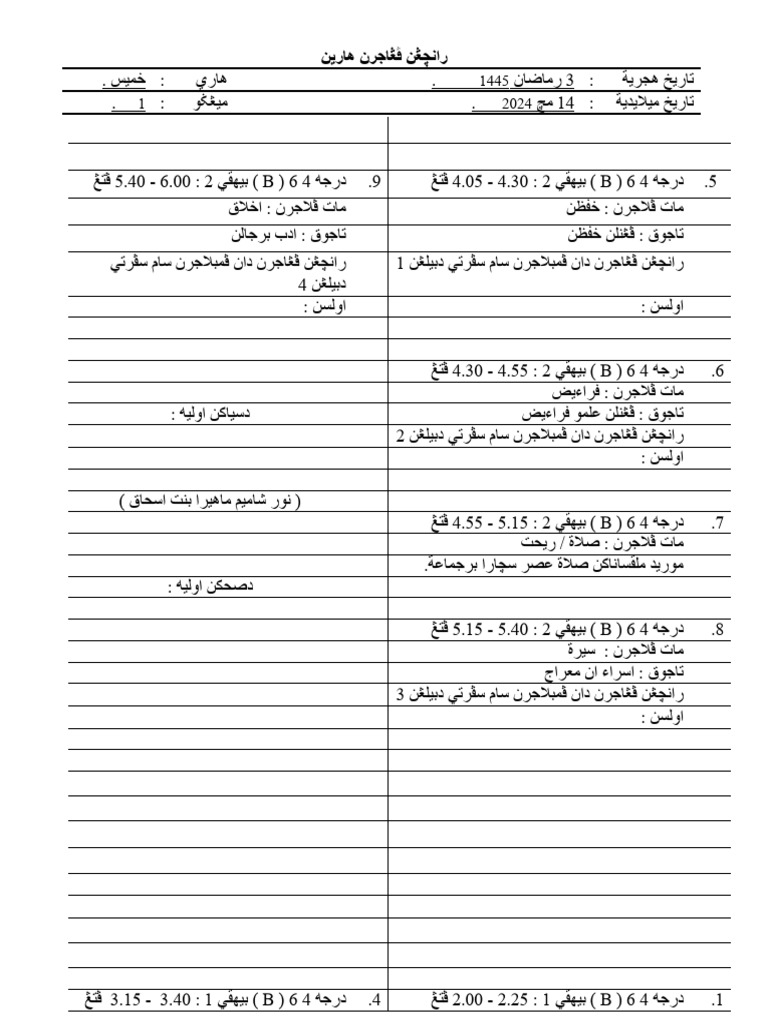 رانچڠن ڤڠاجرن هارين
تاريخ هجرية : 3 رماضان 1445 . هاري : خميس .
تاريخ ميلايدية : 14 مچ 2024 . ميڠݢو : 1 .
5. درجه 4 6 ( B ) بيهڤي 2 : 4.30 - 4.05 ڤتڠ
مات ڤلاجرن : خفظن
تاجوق : ڤڠنلن خفظن
رانچڠن ڤڠاجرن دان ڤمبلاجرن سام سڤرتي دبيلڠن 1
اولسن :
6. درجه 4 6 ( B ) بيهڤي 2 : 4.55 - 4.30 ڤتڠ
مات ڤلاجرن : فراءيض
تاجوق : ڤڠنلن علمو فراءيض
رانچڠن ڤڠاجرن دان ڤمبلاجرن سام سڤرتي دبيلڠن 2
اولسن :
7. درجه 4 6 ( B ) بيهڤي 2 : 5.15 - 4.55 ڤتڠ
مات ڤلاجرن : صلاة / ريحت
موريد ملقساناكن صلاة عصر سچارا برجماعة.
8. درجه 4 6 ( B ) بيهڤي 2 : 5.40 - 5.15 ڤتڠ
مات ڤلاجرن : سيرة
تاجوق : اسراء ان معراج
رانچڠن ڤڠاجرن دان ڤمبلاجرن سام سڤرتي دبيلڠن 3
اولسن :
9. درجه 4 6 ( B ) بيهڤي 2 : 6.00 - 5.40 ڤتڠ
مات ڤلاجرن : اخلاق
تاجوق : ادب برجالن
رانچڠن ڤڠاجرن دان ڤمبلاجرن سام سڤرتي
دبيلڠن 4
اولسن :
دسياكن اوليه :
( نور شاميم ماهيرا بنت اسحاق )
دصحكن اوليه :
1. درجه 4 6 ( B ) بيهڤي 1 : 2.25 - 2.00 ڤتڠ
4. درجه 4 6 ( B ) بيهڤي 1 : 3.40 - 3.15 ڤتڠ